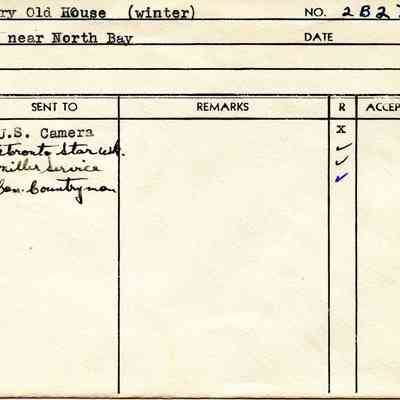 ry Old House (winter) NO. 2B27
near North Bay DATE
SENT TO REMARKS R ACCEP
U.S. Camera X
toronto Star wk. ✓
miller Service ✓
Can. Countryman ✓